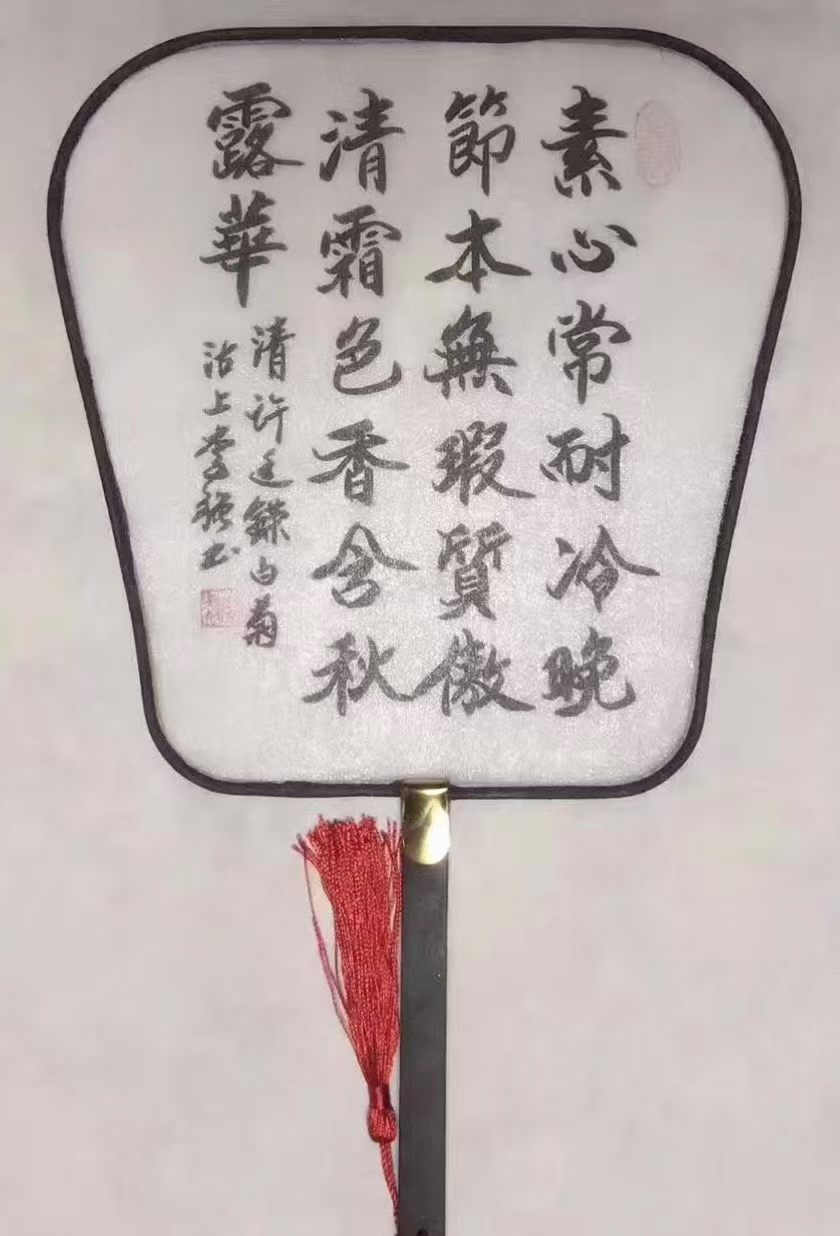 素心常耐冷晚
節本無瑕質傲
清霜色香含秋
露華
清许廷鑅白菊
沽上李强书